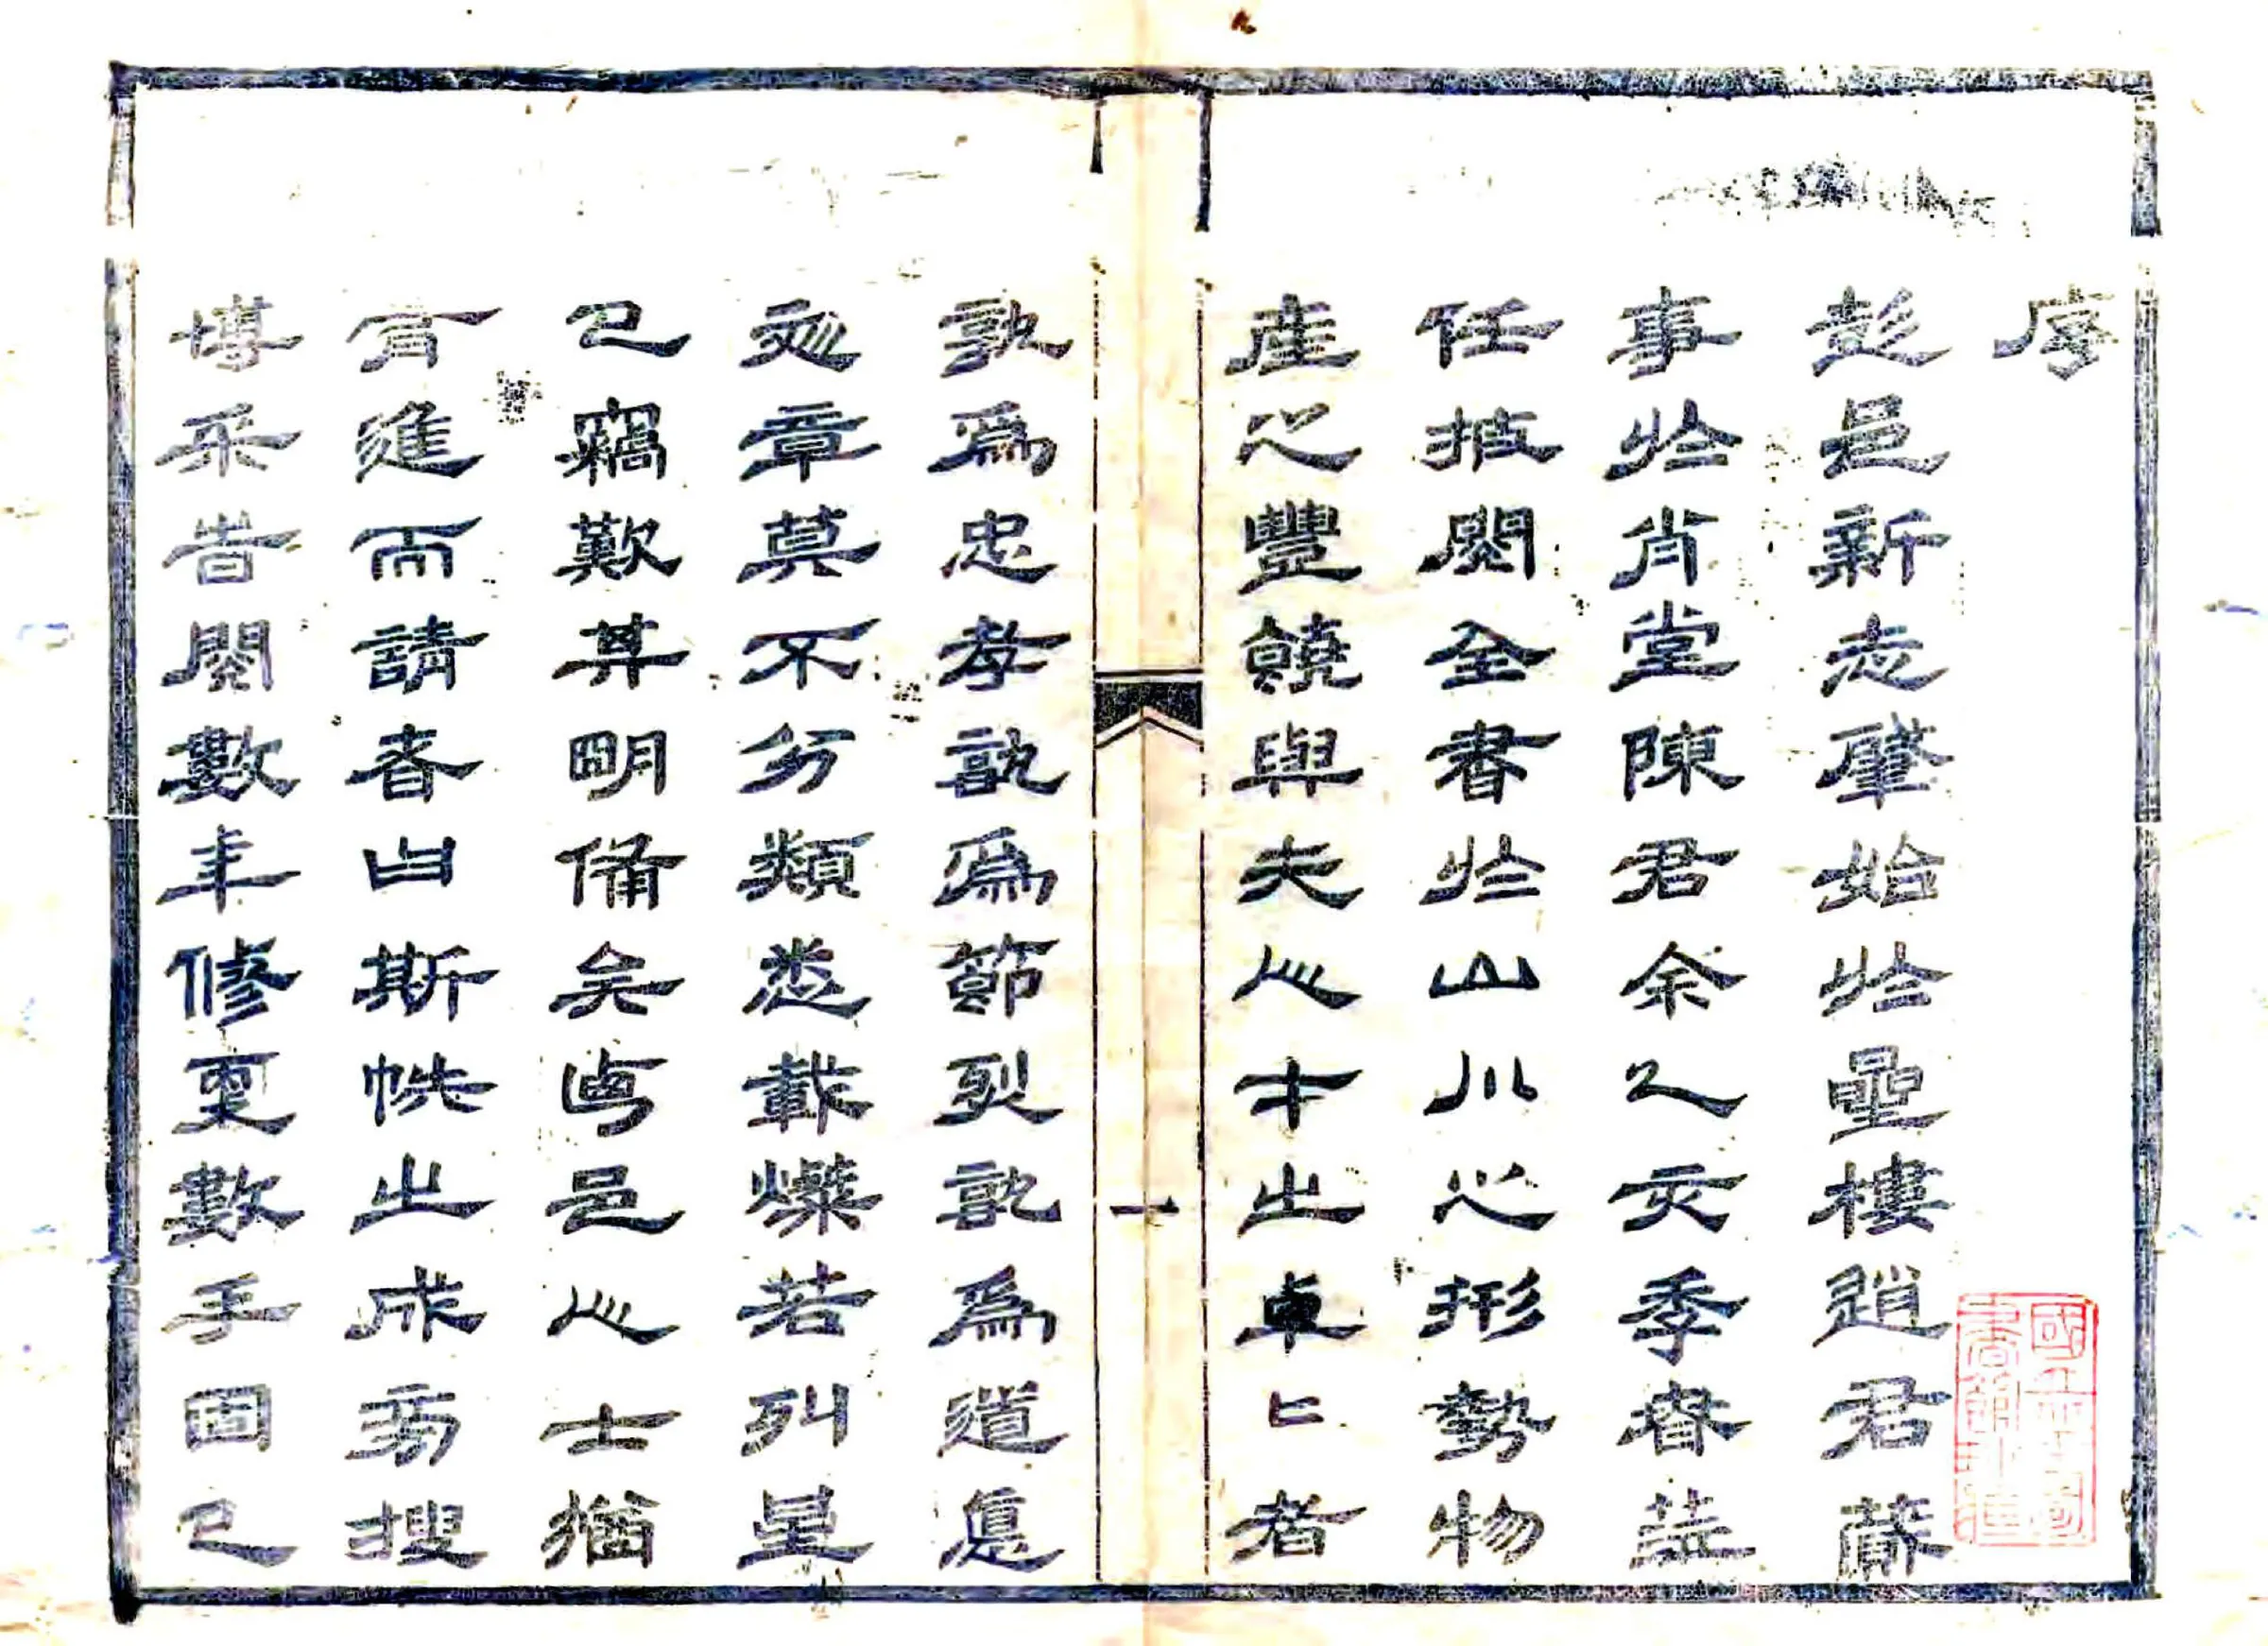 序
彭邑新志肇始於曐樓趙君蕆
事於肖堂陳君余乙亥季春蒞
任披閱全書於山川之形勢物
産之豐饒與夫人才之卓卓者
一
孰爲忠孝孰爲節烈孰爲道悳
文章莫不分類悉載燦若列星
已竊歎其明備矣迺邑人士猶
有進而請者曰斯帙之成旁搜
博采旹閱數年修更數手固已